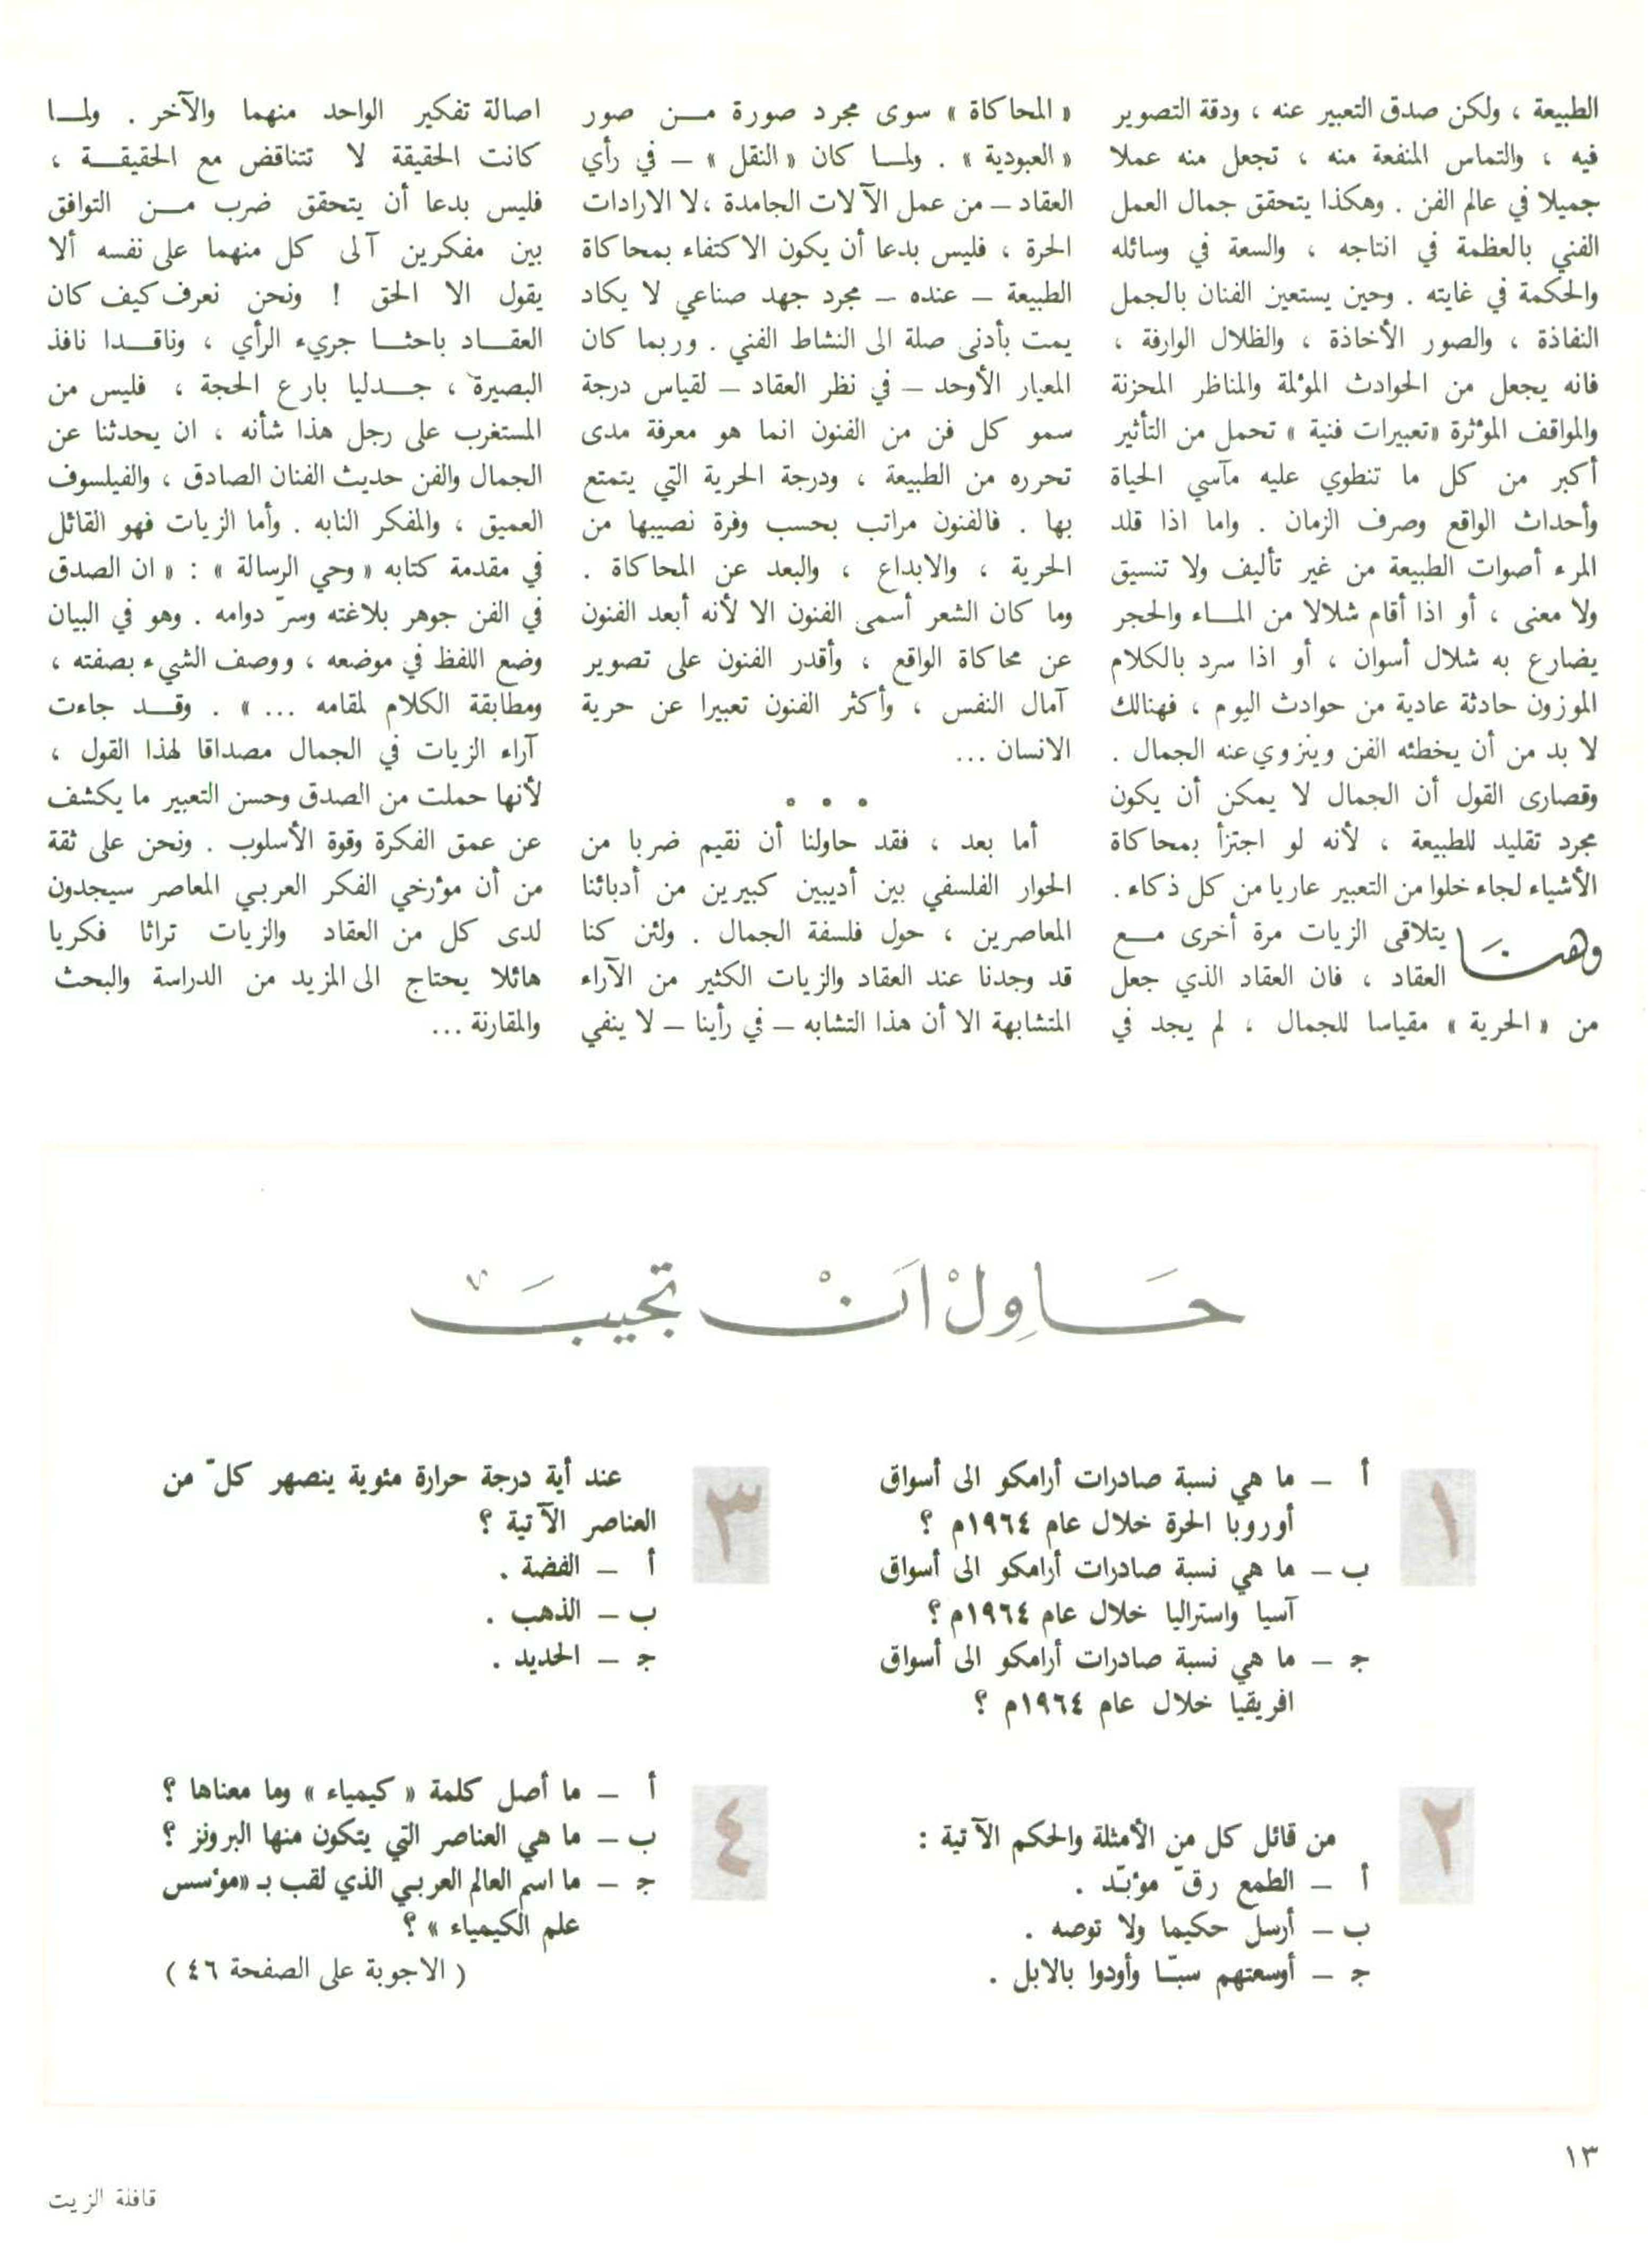 الطبيعة ، ولكن صدق التعبير عنه ، ودقة التصوير
فيه ، والتماس المنفعة منه ، تجعل منه عملا
جميلا في عالم الفن . وهكذا يتحقق جمال العمل
الفني بالعظمة في انتاجه ، والسعة في وسائله
والحكمة في غايته . وحين يستعين الفنان بالجمل
النفاذة ، والصور الأخاذة ، والظلال الوارفة ،
فانه يجعل من الحوادث المؤلمة والمناظر المحزنة
والمواقف المؤثرة «تعبيرات فنية » تحمل من التأثير
أكبر من كل ما تنطوي عليه مآسي الحياة
وأحداث الواقع وصرف الزمان . واما اذا قلد
المرء أصوات الطبيعة من غير تأليف ولا تنسيق
ولا معنى ، أو اذا أقام شلالا من المـاء والحجر
يضارع به شلال أسوان ، أو اذا سرد بالكلام
الموزون حادثة عادية من حوادث اليوم ، فهنالك
لا بد من أن يخطئه الفن وينزوي عنه الجمال .
وقصارى القول أن الجمال لا يمكن أن يكون
مجرد تقليد للطبيعة ، لأنه لو اجتزأ بمحاكاة
الأشياء لجاء خلوا من التعبير عاريا من كل ذكاء .
وهنَا يتلاقى الزيات مرة أخرى مـع
العقاد ، فان العقاد الذي جعل
من « الحرية » مقياسا للجمال ، لم يجد في
« المحاكاة » سوى مجرد صورة مـن صور
« العبودية » . ولمـا كان «النقل » – في رأي
العقاد – من عمل الآلات الجامدة ،لا الارادات
الحرة ، فليس بدعا أن يكون الاكتفاء بمحاكاة
الطبيعة – عنده – مجرد جهد صناعي لا يكاد
يمت بأدنى صلة الى النشاط الفني . وربما كان
المعيار الأوحد – في نظر العقاد – لقياس درجة
سمو كل فن من الفنون انما هو معرفة مدى
تحرره من الطبيعة ، ودرجة الحرية التي يتمتع
بها . فالفنون مراتب بحسب وفرة نصيبها من
الحرية ، والابداع ، والبعد عن المحاكاة .
وما كان الشعر أسمى الفنون الا لأنه أبعد الفنون
عن محاكاة الواقع ، وأقدر الفنون على تصوير
آمال النفس ، وأكثر الفنون تعبيرا عن حرية
الانسان ...
• • •
أما بعد ، فقد حاولنا أن نقيم ضربا من
الحوار الفلسفي بين أديبين كبيرين من أدبائنا
المعاصرين ، حول فلسفة الجمال . ولئن كنا
قد وجدنا عند العقاد والزيات الكثير من الآراء
المتشابهة الا أن هذا التشابه – في رأينا – لا ينفي
اصالة تفكير الواحد منهما والآخر . ولمـا
كانت الحقيقة لا تتناقض مع الحقيقـة ،
فليس بدعا أن يتحقق ضرب مـن التوافق
بين مفكرين آلى كل منهما على نفسه ألا
يقول الا الحق ! ونحن نعرف كيف كان
العقـاد باحثـا جريء الرأي ، وناقـدا نافذ
البصيرة ، جـدليا بارع الحجة ، فليس من
المستغرب على رجل هذا شأنه ، ان يحدثنا عن
الجمال والفن حديث الفنان الصادق ، والفيلسوف
العميق ، والمفكر النابه . وأما الزيات فهو القائل
في مقدمة كتابه « وحي الرسالة » : « ان الصدق
في الفن جوهر بلاغته وسرّ دوامه . وهو في البيان
وضع اللفظ في موضعه ، ووصف الشيء بصفته ،
ومطابقة الكلام لمقامه ... » . وقـد جاءت
آراء الزيات في الجمال مصداقا لهذا القول ،
لأنها حملت من الصدق وحسن التعبير ما يكشف
عن عمق الفكرة وقوة الأسلوب . ونحن على ثقة
من أن مؤرخي الفكر العربي المعاصر سيجدون
لدى كل من العقاد والزيات تراثا فكريا
هائلا يحتاج الى المزيد من الدراسة والبحث
والمقارنة ...
حَاوِلْ اَنْ تجيبَ
١
أ – ما هي نسبة صادرات أرامكو الى أسواق
أوروبا الحرة خلال عام ١٩٦٤م ؟
ب – ما هي نسبة صادرات أرامكو الى أسواق
آسيا واستراليا خلال عام ١٩٦٤م ؟
جـ – ما هي نسبة صادرات أرامكو الى أسواق
افريقيا خلال عام ١٩٦٤م ؟
٢
من قائل كل من الأمثلة والحكم الآتية :
أ – الطمع رقّ مؤبّد .
ب – أرسل حكيما ولا توصه .
جـ – أوسعتهم سبّا وأودوا بالابل .
٣
عند أية درجة حرارة مئوية ينصهر كلّ من
العناصر الآتية ؟
أ – الفضة .
ب – الذهب .
جـ – الحديد .
٤
أ – ما أصل كلمة « كيمياء » وما معناها ؟
ب – ما هي العناصر التي يتكون منها البرونز ؟
جـ – ما اسم العالم العربي الذي لقب بـ «مؤسس
علم الكيمياء » ؟
( الاجوبة على الصفحة ٤٦ )
١٣
قافلة الزيت